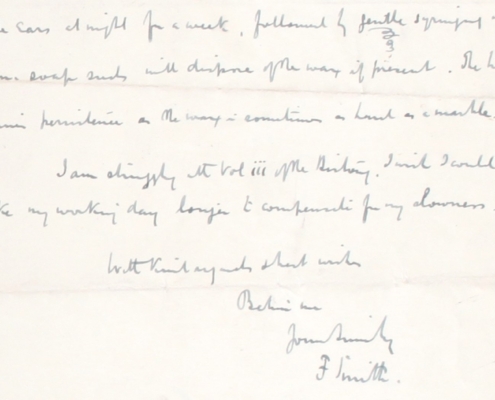 ears at night for a week, followed by gentle syringing
soap suds will dispose of the wax if present. The
persistence as the wax is sometimes as hard as a marble.
I am struggling with Vol iii of the History. I wish I could
my working day longer to compensate for my slowness.
With kind regards & best wishes
Believe me
Yours sincerely
F Smith.